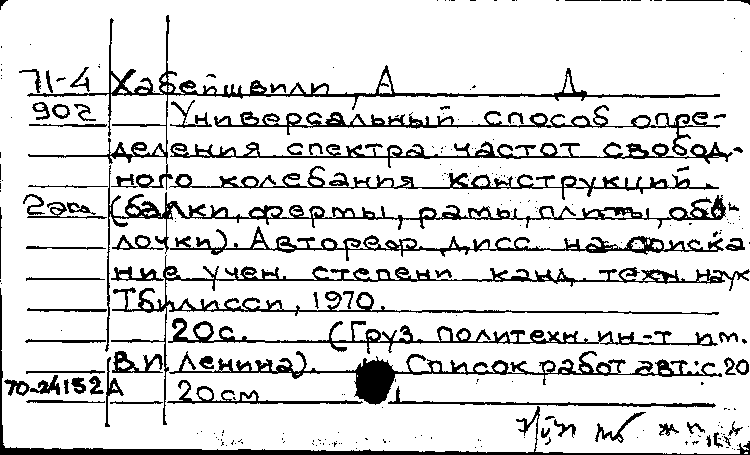 71-4 Хабейшвили, А Д
902 Универсальный способ опре-
деления спектра частот свобод-
ного колебания конструкций.
2 экз (балки, фермы, рамы, плиты, обо-
лочки). Автореф. дисс. на соиска-
ние учен. степени канд. техн. наук
Тбилисси, 1970.
20с. (Груз. политехн. ин-т им.
В.И. Ленина). Список работ авт.: с. 20
70-24152А 20см